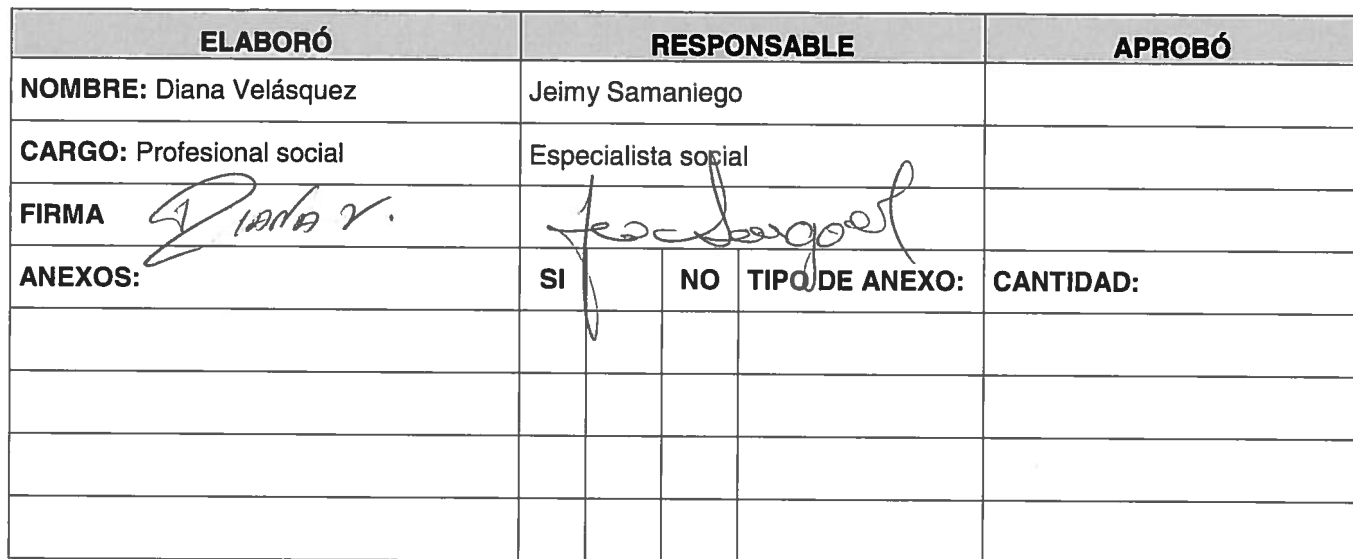 ELABORÓ RESPONSABLE APROBÓ
NOMBRE: Diana Velásquez Jeimy Samaniego
CARGO: Profesional social Especialista social
FIRMA Diana V.
ANEXOS: SI NO TIPO DE ANEXO: CANTIDAD: